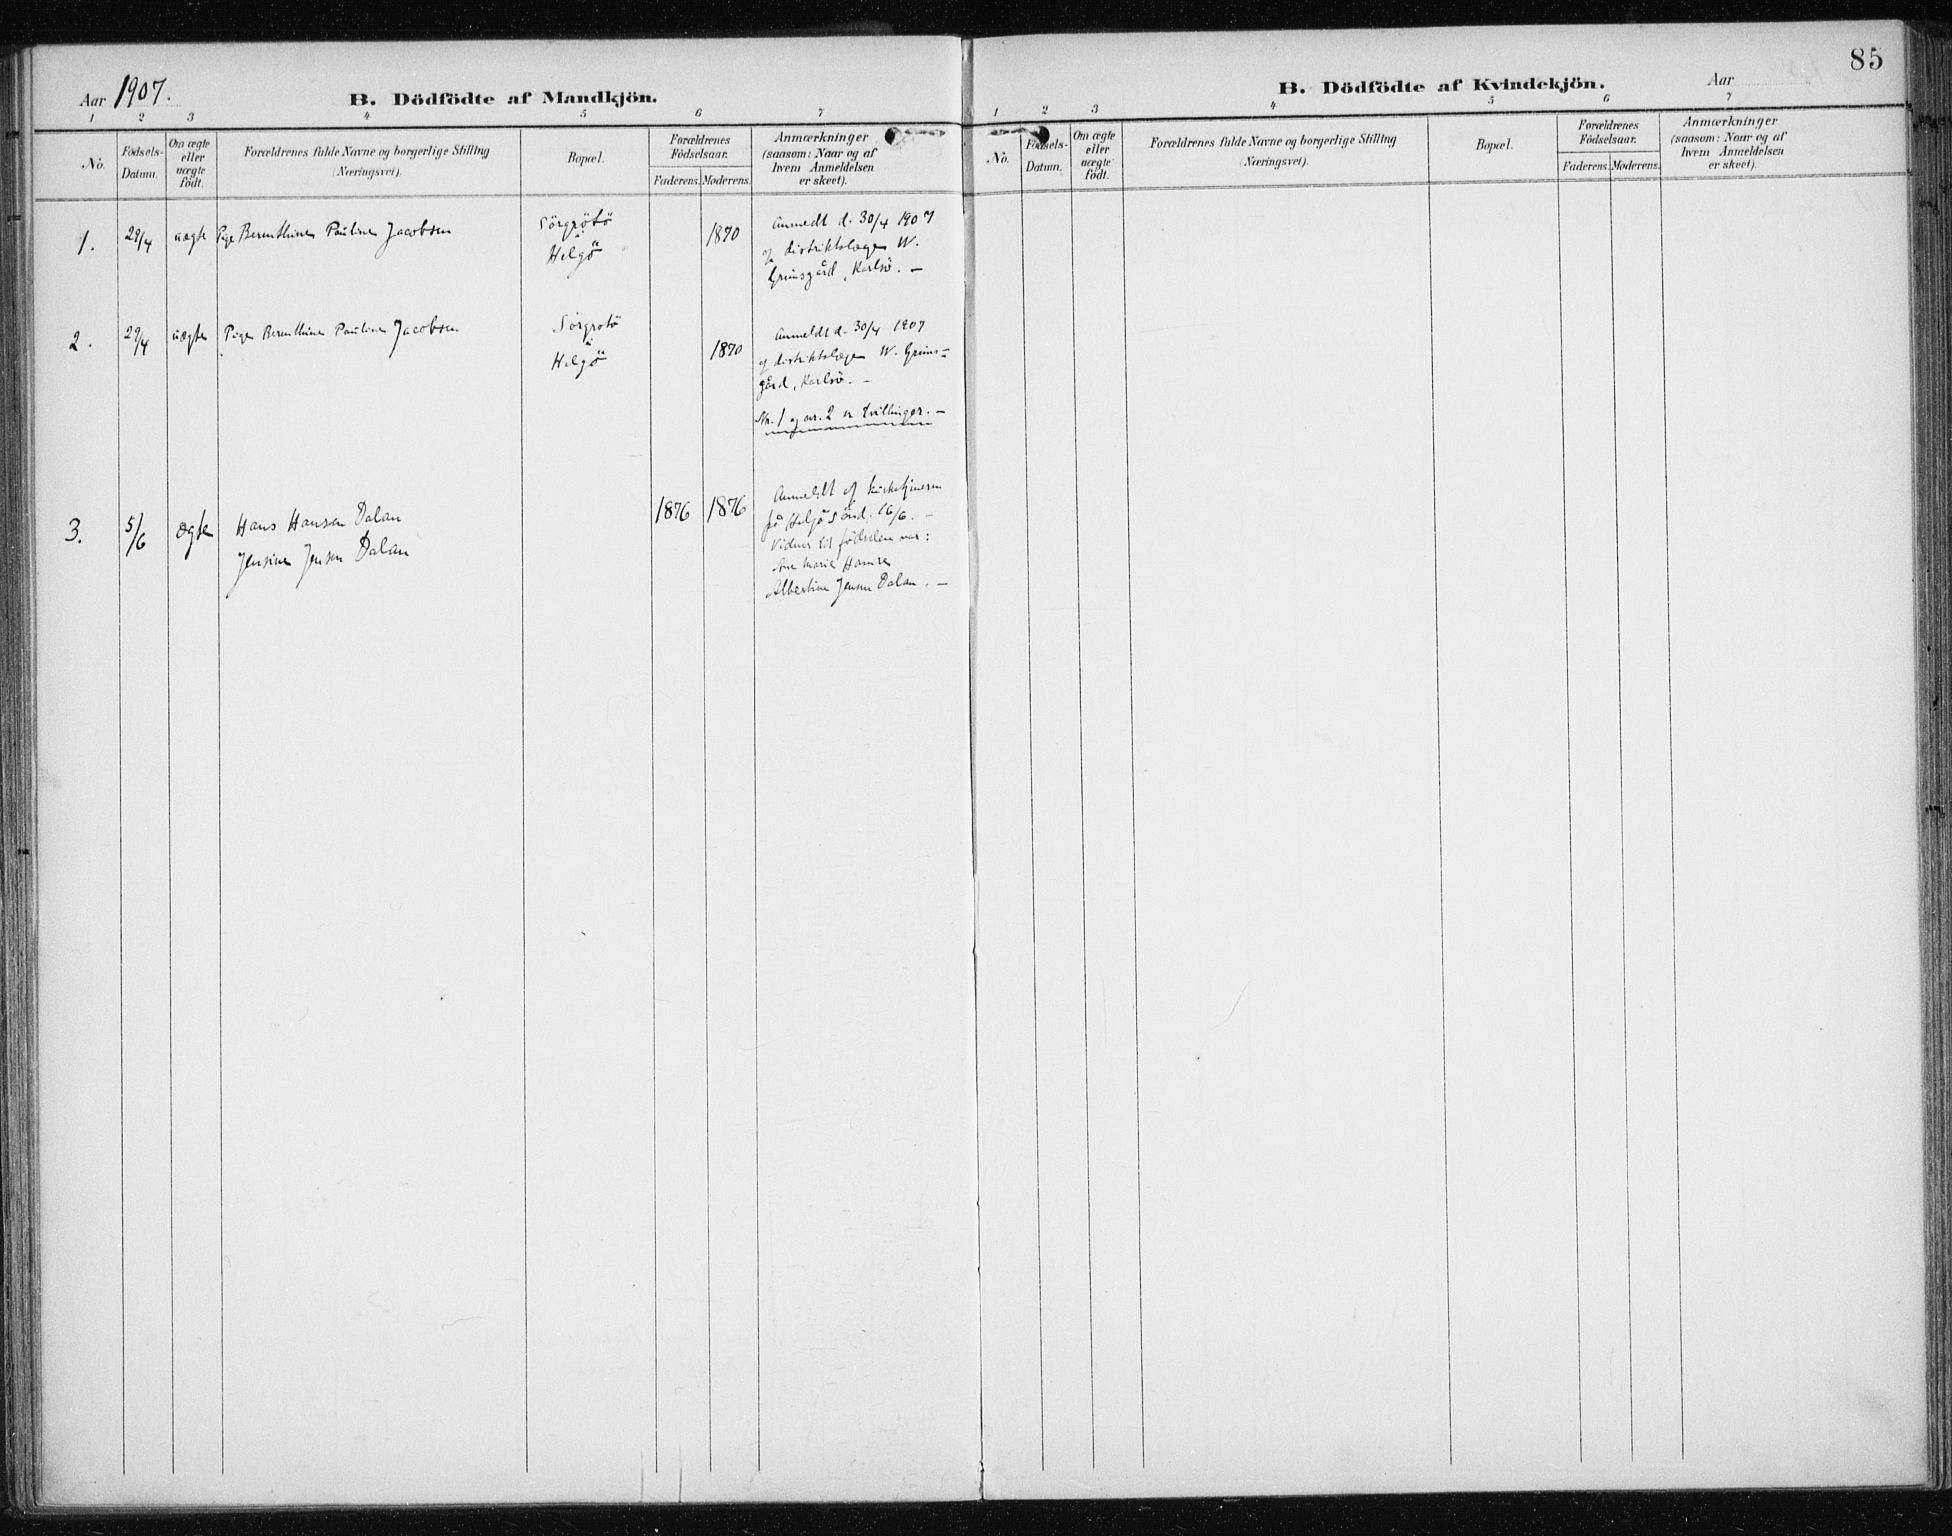 Aar 1907.
B. Dödfödte af Mandkjön.
1 2 3 4 5 6 7
No.
Födsels-
Datum.
Om ægte
eller
uægte
födt.
Forældrenes fulde Navne og borgerlige Stilling
(Næringsvei).
Bopæl.
Forældrenes
Födselsaar.
Faderens. Moderens.
Anmærkninger
(saasom: Naar og af
hvem Anmeldelsen
er skeet).
1. 29/4 uægte Pige Berenthine Pauline Jacobsen
Sörgrötö
å
Helgö
1870
Anmedt d. 30/4 1907
af distriktslæge W.
Grimsgård, Karlsö. —
2. 29/4 uægte Pige Berenthine Pauline Jacobsen
Sörgrotö
å
Helgö
1870
Anmeldt d. 30/4 1907
af distriktslæge W. Grims=
gård, Karlsö. —
Nr. 1 og nr. 2 er tvillinger. —
3. 5/6 ægte
Hans Hansen Dalan
Jensine Jensen Dalan
1876 1876
Anmeldt af kirketjeneren
på Helgö 16/6. —
Vidner til fødselen var:
Ane Marie Hansen
Albertine Jensen Dalan. —
85
Aar
B. Dödfödte af Kvindekjön.
1 2 3 4 5 6 7
No.
Födsels-
Datum.
Om ægte
eller
uægte
födt.
Forældrenes fulde Navne og borgerlige Stilling
(Næringsvei).
Bopæl.
Forældrenes
Födselsaar.
Faderens. Moderens.
Anmærkninger
(saasom: Naar og af
hvem Anmeldelsen
er skeet).